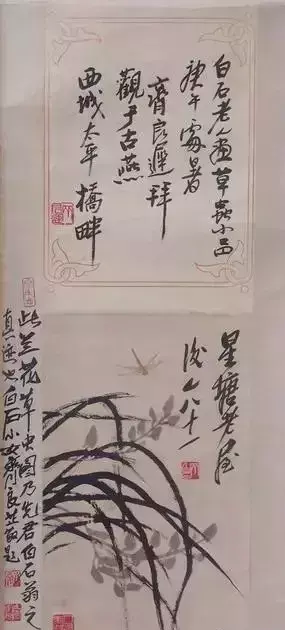 白石老人画草蟲小品
庚午處暑
齊良遲拜
觀于古燕
西城太平橋畔
星塘老屋
後人八十一
此兰花草虫图乃先君白石翁之
真迹也白石小女齊良芷敬題